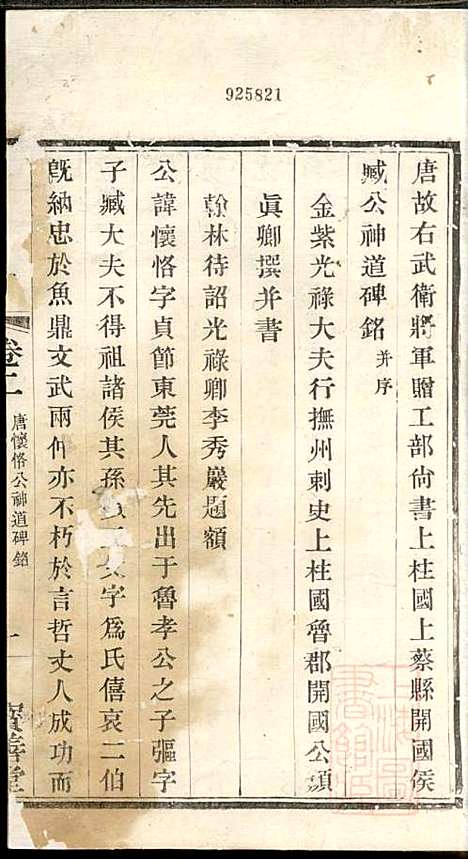 925821
唐故右武衛將軍贈工部尙書上柱國上蔡縣開國侯
臧公神道碑銘 并序
金紫光祿大夫行撫州刺史上柱國魯郡開國公頴
眞卿撰并書
翰林待詔光祿卿李秀巖題額
公諱懷恪字貞節東莞人其先出于魯孝公之子彄字
子臧大夫不得祖諸侯其孫以王父字爲氏僖哀二伯
旣納忠於魚鼎文武兩仲亦不朽於言哲丈人成功而
卷二
唐懷恪公神道碑銘
一